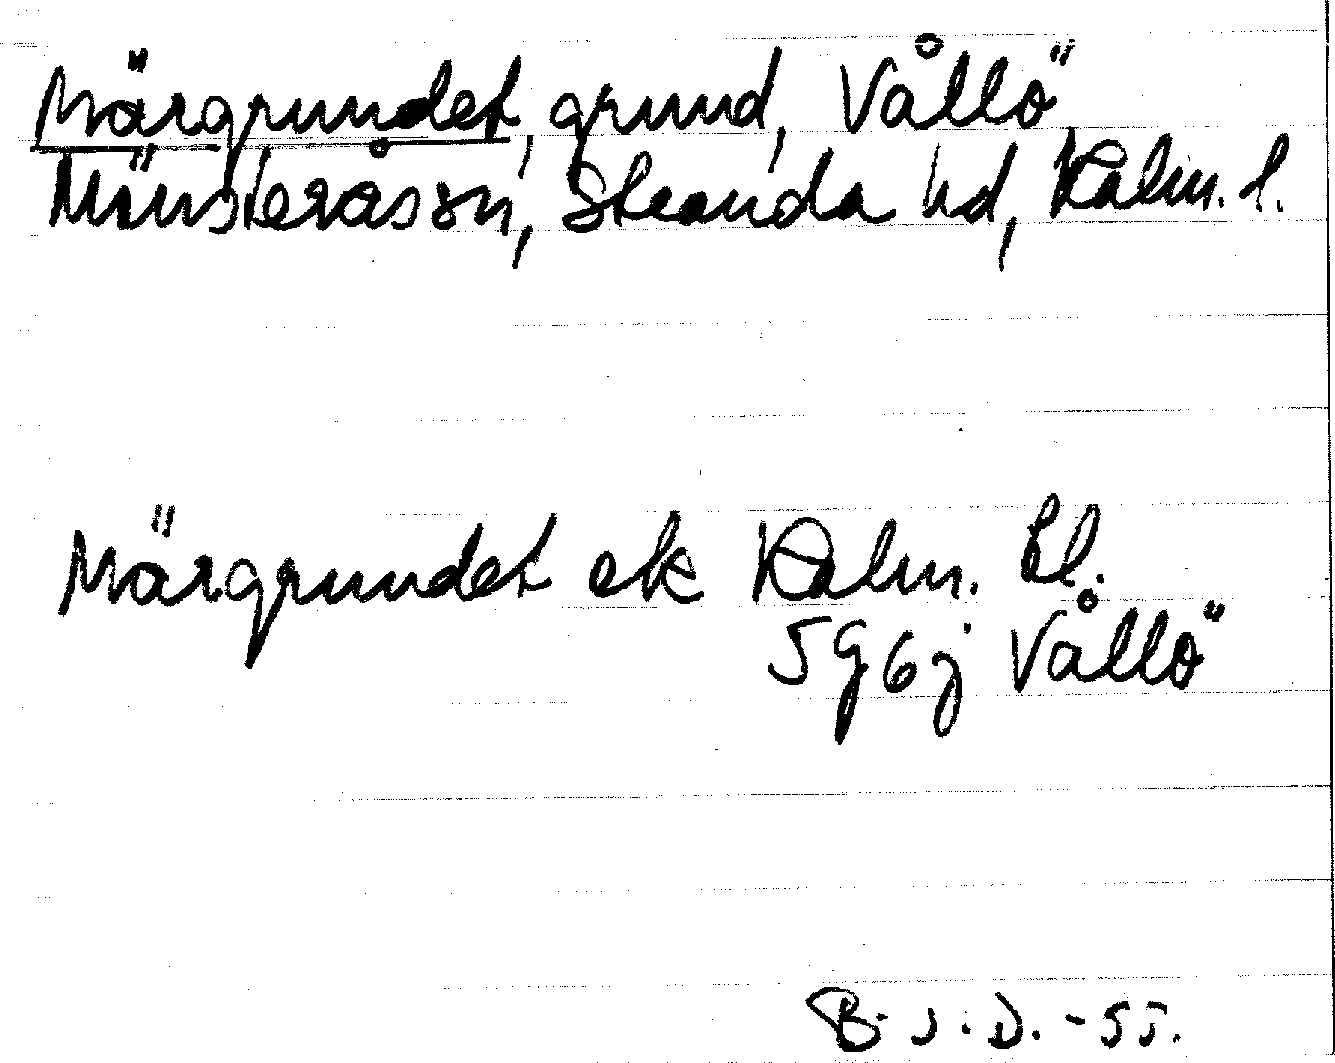 Märgrundet, grund, Vållö
Mönsterås sn, Stranda hd, Kalm. l.
Märgrundet ek Kalm. Bl.
5G6j Vållö
B. J. D. -55.